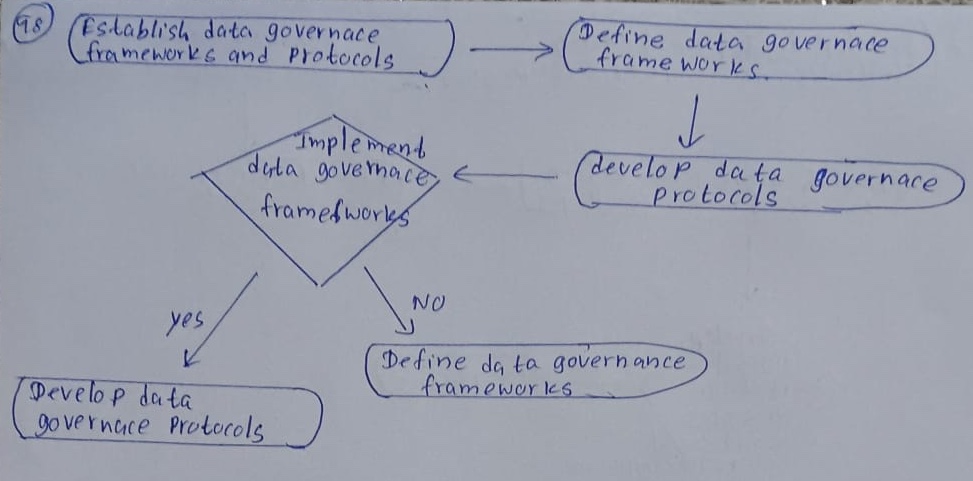 98
Establish data governace
frameworks and Protocols
Define data governace
frameworks.
develop data governace
Protocols
Implement
data governace
framefworks
yes
NO
Develop data
governace Protocols
Define data governance
frameworks